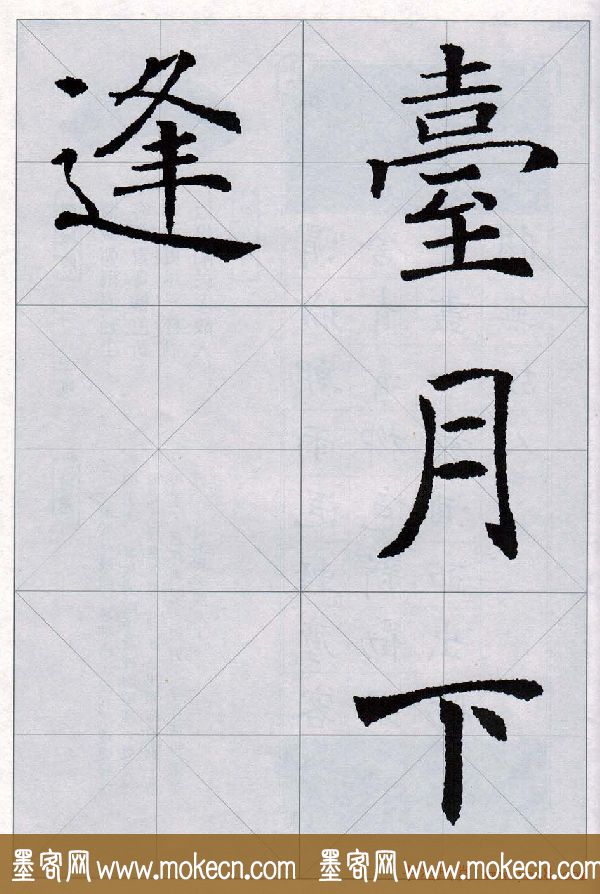 臺月下
逢
墨客网 www.mokecn.com 墨客网 www.mokecn.com